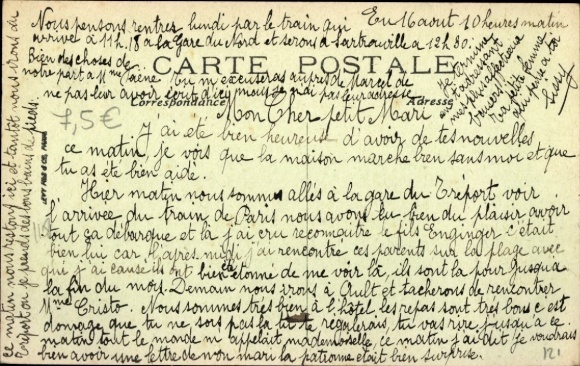 Eu 16 aout 10 heures matin
Nous pensons rentrer lundi par le train qui
arrive à 11h.18 a la Gare du Nord et serons a Sartrouville a 12h30.
Bien des choses de
notre part a Mme Jaéné. Tu m'excuseras auprès de Marcel de
ne pas leur avoir écrit d'ici mais je n'ai pas leur adresse
CARTE POSTALE
Correspondance
Adresse
7,5€
LEVY FILS & CIE, PARIS
Mon Cher petit Mari
J'ai été bien heureuse d'avoir de tes nouvelles
ce matin, je vois que la maison marche bien sans moi et que
tu as été bien aidé.
Hier matin nous sommes allés à la gare du Tréport voir
l'arrivée du train de Paris nous avons eu bien du plaisir à voir
tout ça débarqué et là j'ai cru reconnaitre le fils Enginger c'était
bien lui car l'après midi j'ai rencontré ces parents sur la plage avec
qui j'ai causé ils ont été bien étonné de me voir là, ils sont là pour jusqu'a
la fin du mois. Demain nous irons à Ault et tacherons de rencontrer
Mme Cristo. Nous sommes très bien à l'hôtel, les repas sont très bons c est
domage que tu ne sois pas là tu te régalerais, tu vas rire jusqu'a ce
matin tout le monde m'appelait mademoiselle, ce matin j'ai dit je voudrais
bien avoir une lettre de mon mari la patronne était bien surprise.
ce matin nous restons ici et tantôt nous irons au
Tréport ou je prends des bons bains de pieds.
Je termine
en t'adressant
mes plus affectueux
baisers
ta petite femme
qui pense à toi
121